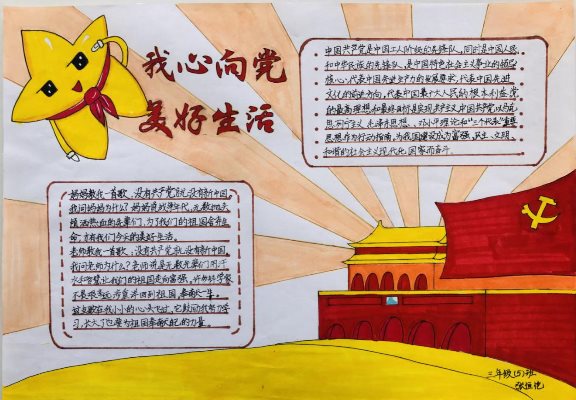 我心向党
美好生活
中国共产党是中国工人阶级的先锋队,同时是中国人民
和中华民族的先锋队,是中国特色社会主义事业的领导
核心,代表中国先进生产力的发展要求,代表中国先进
文化的前进方向,代表中国最广大人民的根本利益。党
的最高理想和最终目标是实现共产主义。中国共产党以马克
思列宁主义、毛泽东思想、邓小平理论和“三个代表”重要
思想作为行动指南,为我国建设成为富强、民主、文明、
和谐的社会主义现代化国家而奋斗。
妈妈教我一首歌,没有共产党就没有新中国。
我问妈妈为什么?妈妈
抛头颅洒热血的先辈们,为了我们的祖国
命,才有我们今天的美好生活。
老师教我一首歌,没有共产党就没有新中国。
我问老师为什么?老师讲是无数先辈们用汗
水和智慧让我们的祖国走向富强,
回到祖国,奉献一生。
这支歌在我小小的心头飞过,它鼓励我努力学
习,长大了也要为祖国奉献我的力量。
三年级(5)班